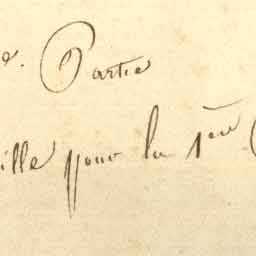 e. Partie
ille pour la 1ere